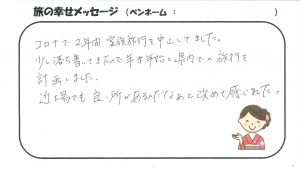 旅の幸せメッセージ（ペンネーム：　　　　　）
コロナで2年間家族旅行を中止してました。
少し落ち着いてきたので年末年始と県内での旅行を
計画しました。
近場でも良い所があるんだなぁと改めて感じました。